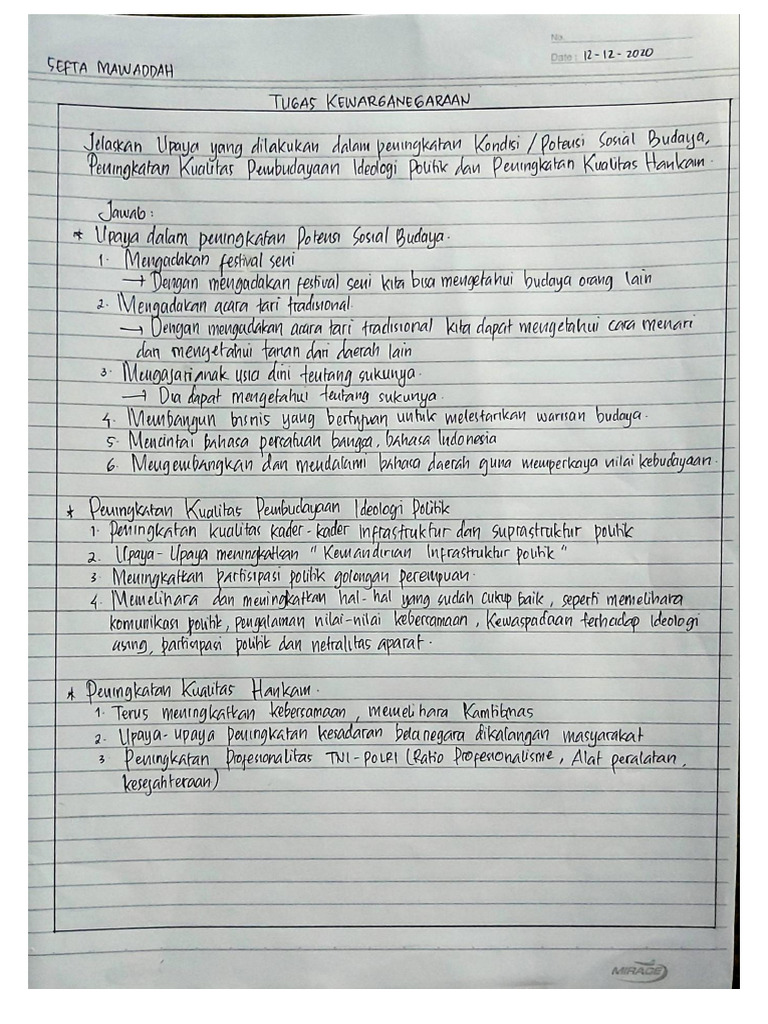 No.
Date : 12-12-2020
SEFTA MAWADDAH
TUGAS KEWARGANEGARAAN
Jelaskan Upaya yang dilakukan dalam peningkatan Kondisi / Potensi Sosial Budaya,
Peningkatan Kualitas Pembudayaan Ideologi Politik dan Peningkatan Kualitas Hankam.
Jawab :
* Upaya dalam peningkatan Potensi Sosial Budaya.
1. Mengadakan festival seni
→ Dengan mengadakan festival seni kita bisa mengetahui budaya orang lain
2. Mengadakan acara tari tradisional.
→ Dengan mengadakan acara tari tradisional kita dapat mengetahui cara menari
dan mengetahui tarian dari daerah lain
3. Mengajari anak usia dini tentang sukunya.
→ Dia dapat mengetahui tentang sukunya.
4. Membangun bisnis yang bertujuan untuk melestarikan warisan budaya.
5. Mencintai bahasa persatuan bangsa, bahasa Indonesia
6. Mengembangkan dan mendalami bahasa daerah guna memperkaya nilai kebudayaan.
* Peningkatan Kualitas Pembudayaan Ideologi Politik
1. Peningkatan kualitas kader-kader infrastruktur dan suprastruktur politik
2. Upaya-Upaya meningkatkan "Kemandirian Infrastruktur politik"
3. Meningkatkan partisipasi politik golongan perempuan.
4. Memelihara dan meningkatkan hal-hal yang sudah cukup baik, seperti memelihara
komunikasi politik, pengalaman nilai-nilai kebersamaan, Kewaspadaan terhadap Ideologi
asing, partisipasi politik dan netralitas aparat.
* Peningkatan Kualitas Hankam.
1. Terus meningkatkan kebersamaan, memelihara Kamtibmas
2. Upaya-upaya peningkatan kesadaran bela negara dikalangan masyarakat
3. Peningkatan Profesionalitas TNI-POLRI (Ratio Profesionalisme, Alat peralatan,
kesejahteraan)
MIRAGE